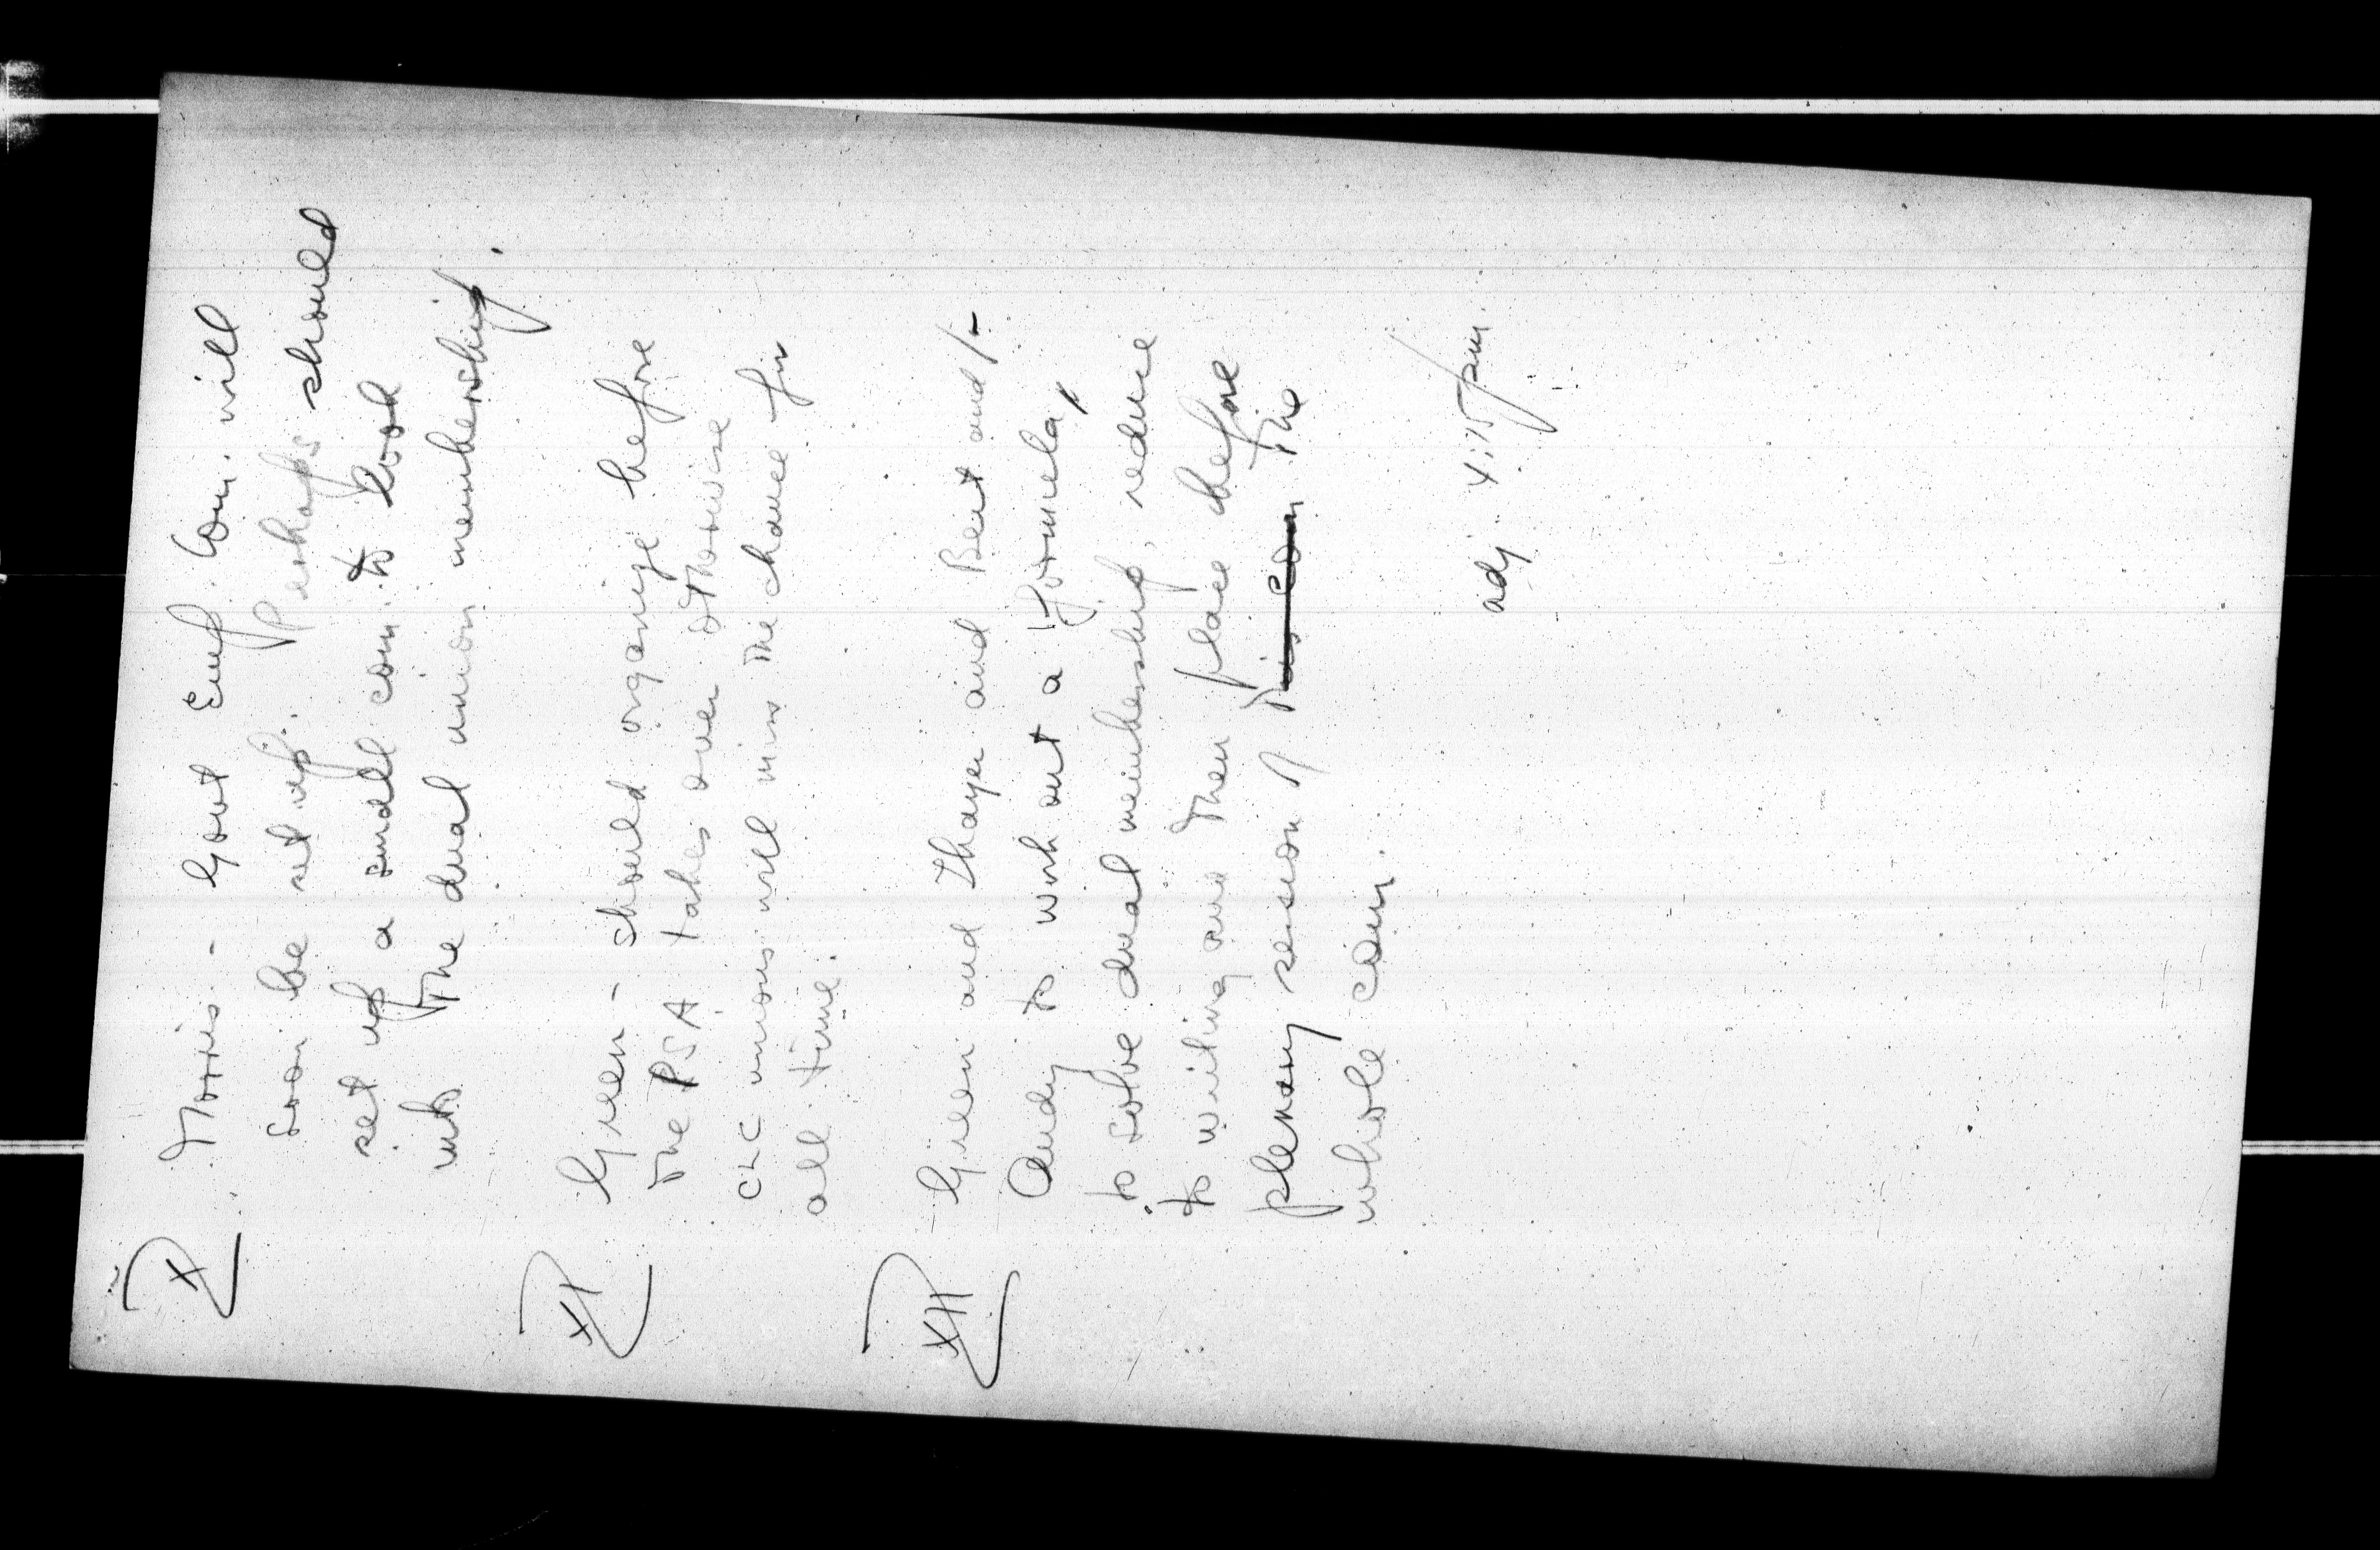 X. Morris - Govt Emp. Com. will
soon be set up. Perhaps should
set up a small com. to look
into the dual union membership.
XI Green - should organize before
the PSA takes over otherwise
CLC unions will miss the chance for
all time.
XII Green and Thayer and Beit and/or
Andy to work out a formula,
to solve dual membership, reduce
to writing and then place before
plenary session of this com the
whole com.
adj. 4:15 pm.